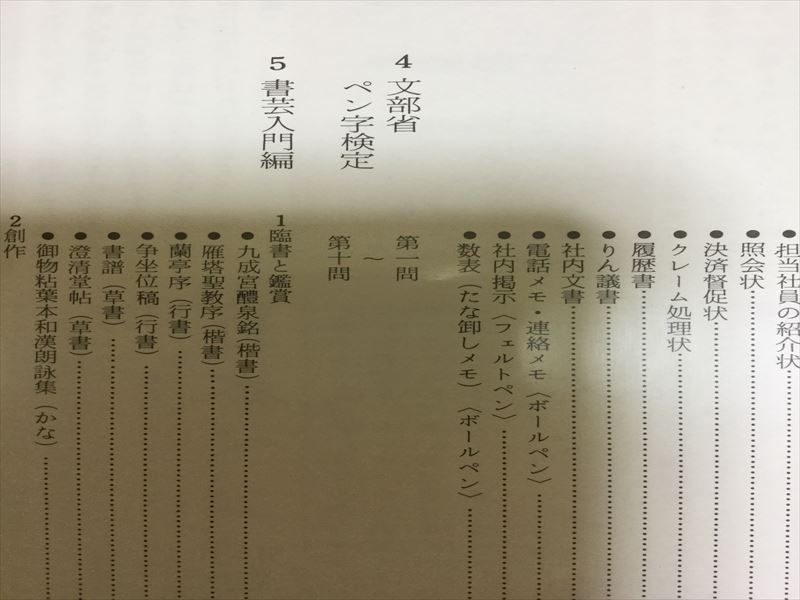 ●担当社員の紹介状
●照会状
●決済督促状
●クレーム処理状
●履歴書
●りん議書
●社内文書
●電話メモ・連絡メモ〈ボールペン〉
●社内掲示〈フェルトペン〉
●数表(たな卸しメモ)〈ボールペン〉
4 文部省
ペン字検定
第一問
〜
第十問
5 書芸入門編
1 臨書と鑑賞
●九成宮醴泉銘(楷書)
●雁塔聖教序(楷書)
●蘭亭序(行書)
●争坐位稿(行書)
●書譜(草書)
●澄清堂帖(草書)
●御物粘葉本和漢朗詠集(かな)
2 創作